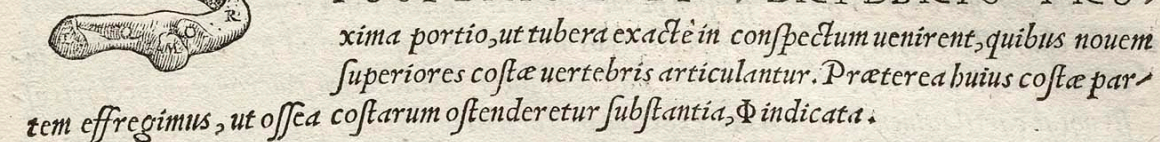 xima portio, ut tubera exactè in conſpectum uenirent, quibus nouem
ſuperiores coſtæ uertebris articulantur. Præterea huius coſtæ par-
tem effregimus, ut oſſea coſtarum oſtenderetur ſubſtantia, Φ indicata.